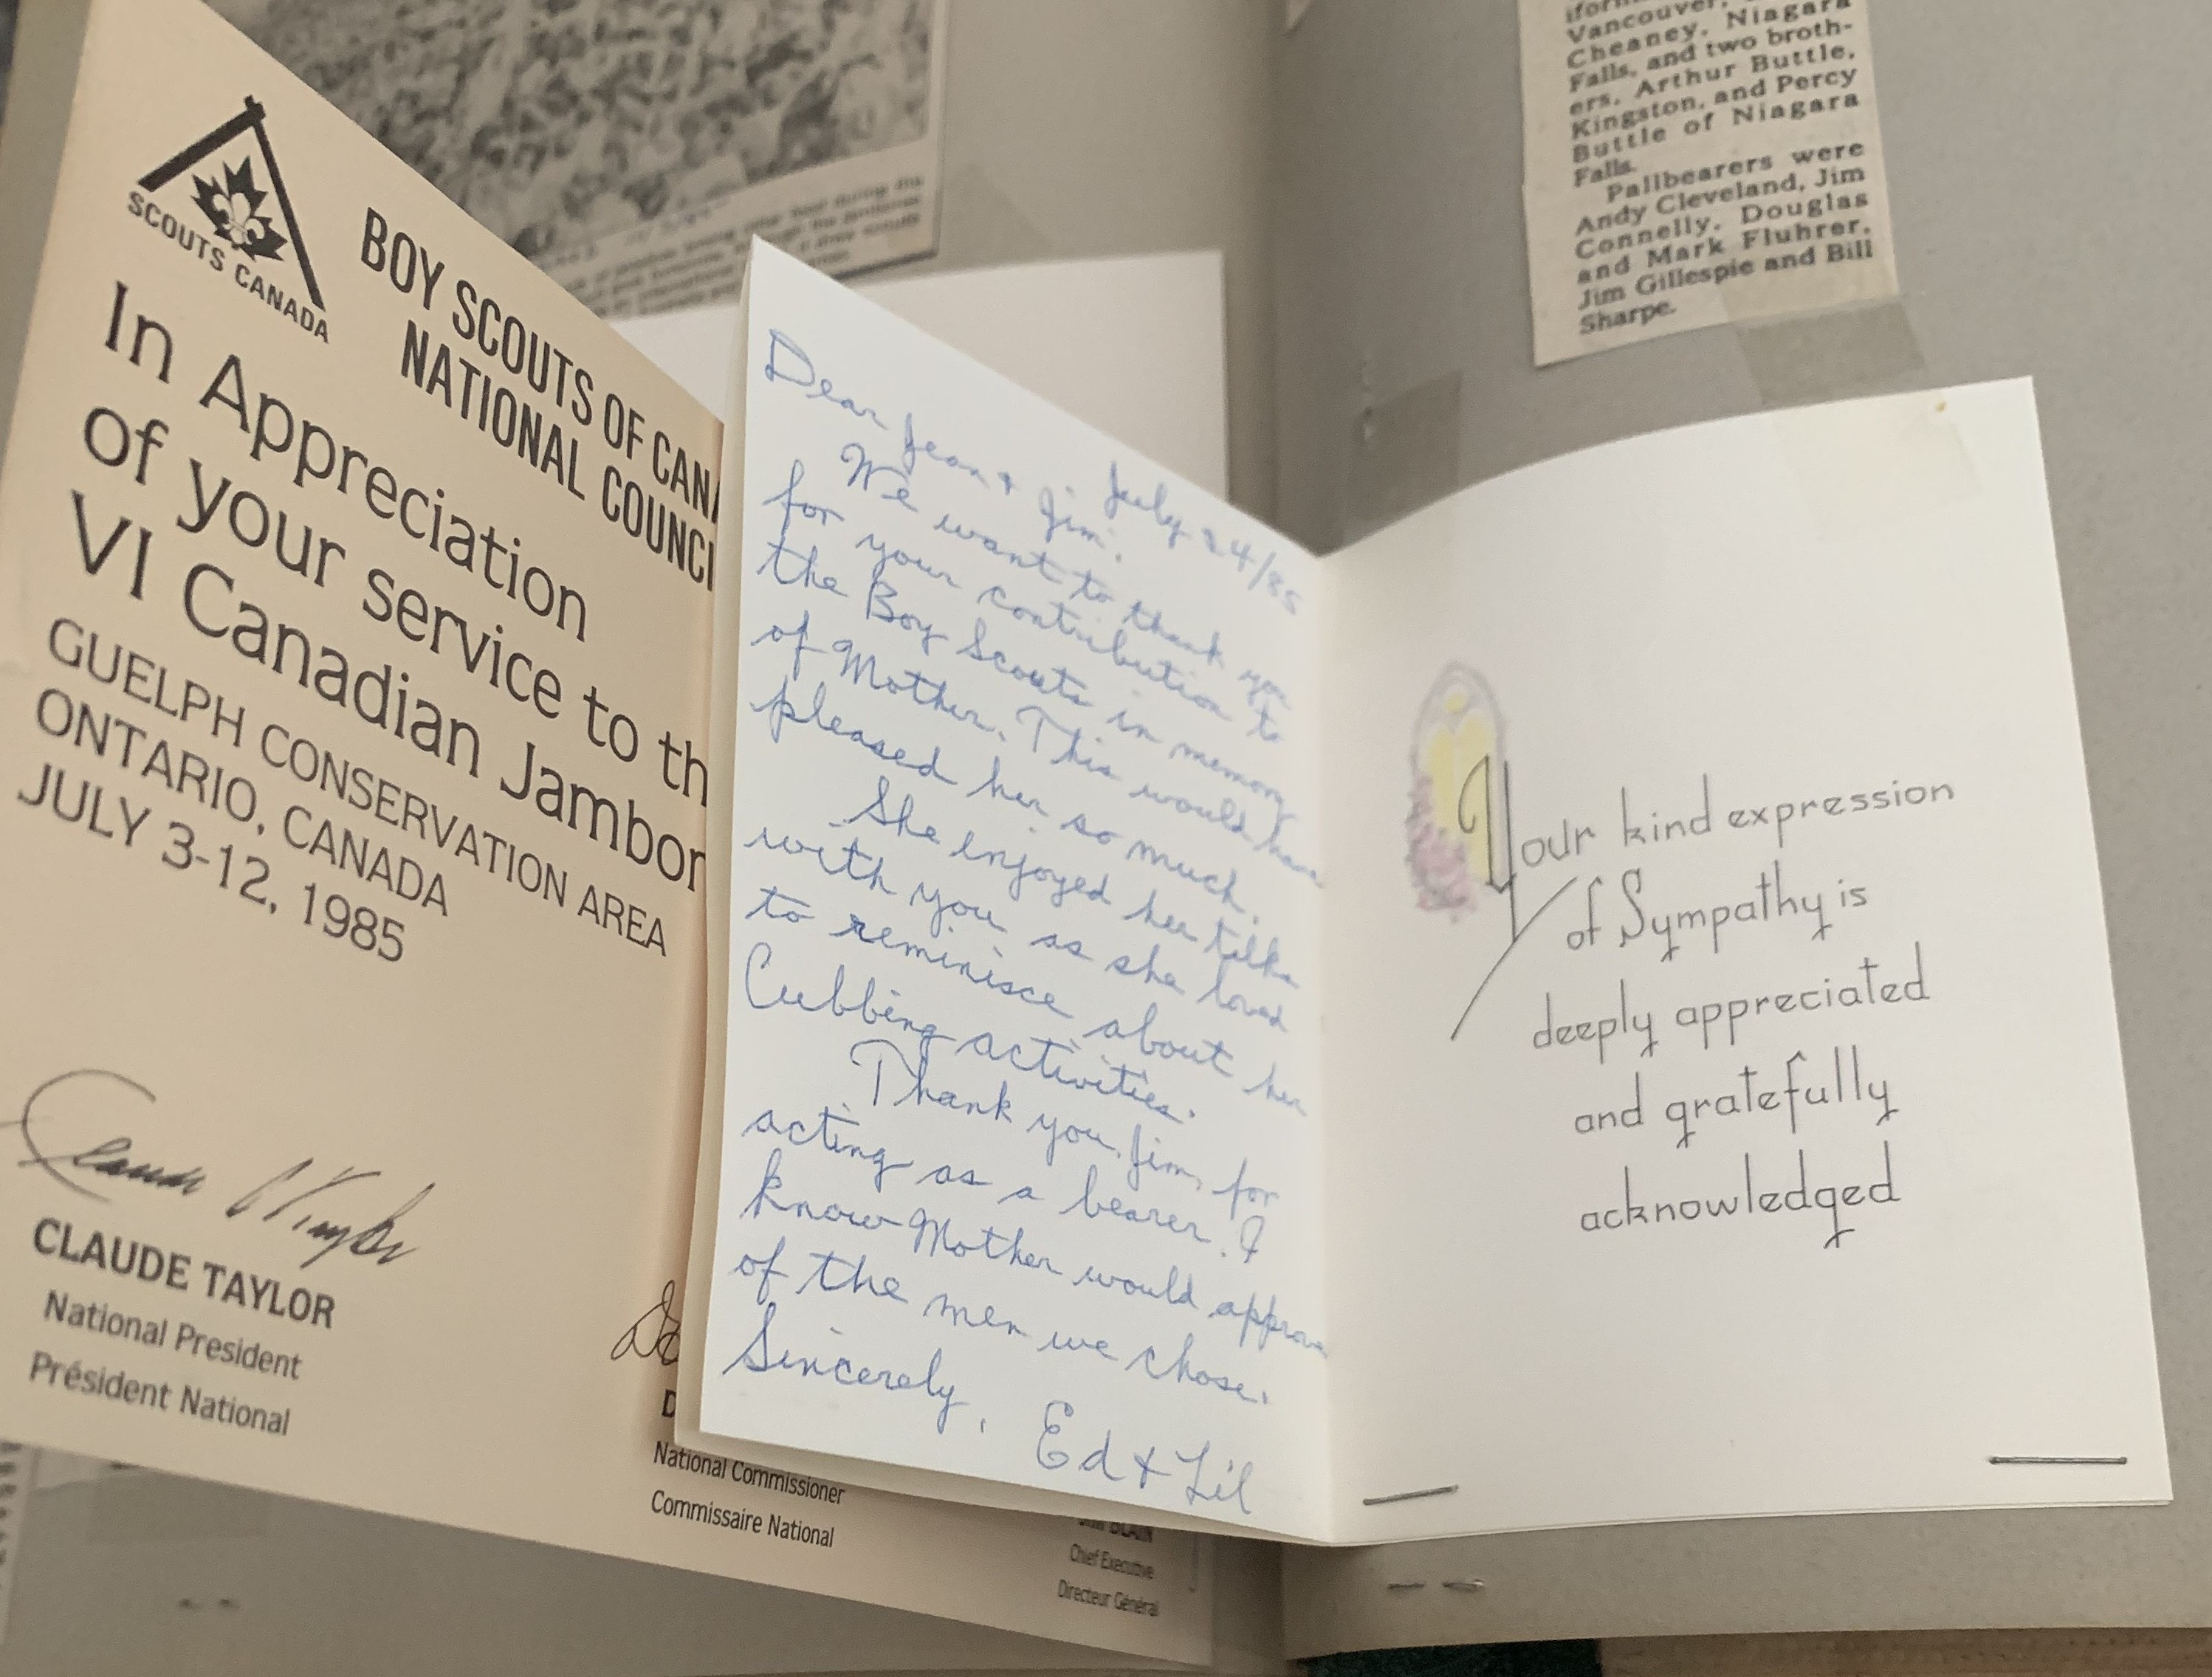 SCOUTS CANADA
BOY SCOUTS OF CAN
NATIONAL COUNCI
In Appreciation
of your service to th
VI Canadian Jambor
GUELPH CONSERVATION AREA
ONTARIO, CANADA
JULY 3-12, 1985
CLAUDE TAYLOR
National President
Président National
D
National Commissioner
Commissaire National
BLAIN
Chief Executive
Directeur Général
July 24/85
Dear Jean & Jim:
We want to thank you
for your contribution to
the Boy Scouts in memory
of Mother. This would have
pleased her so much.
She enjoyed her talks
with you as she loved
to reminisce about her
Cubbing activities.
Thank you, Jim, for
acting as a bearer. I
know Mother would approve
of the men we chose.
Sincerely,
Ed & Lil
Vancouver,
Cheaney, Niagara
Falls, and two broth-
ers, Arthur Buttle,
Kingston, and Percy
Buttle of Niagara
Falls.
Pallbearers were
Andy Cleveland, Jim
Connelly, Douglas
and Mark Fluhrer,
Jim Gillespie and Bill
Sharpe.
Your kind expression
of Sympathy is
deeply appreciated
and gratefully
acknowledged